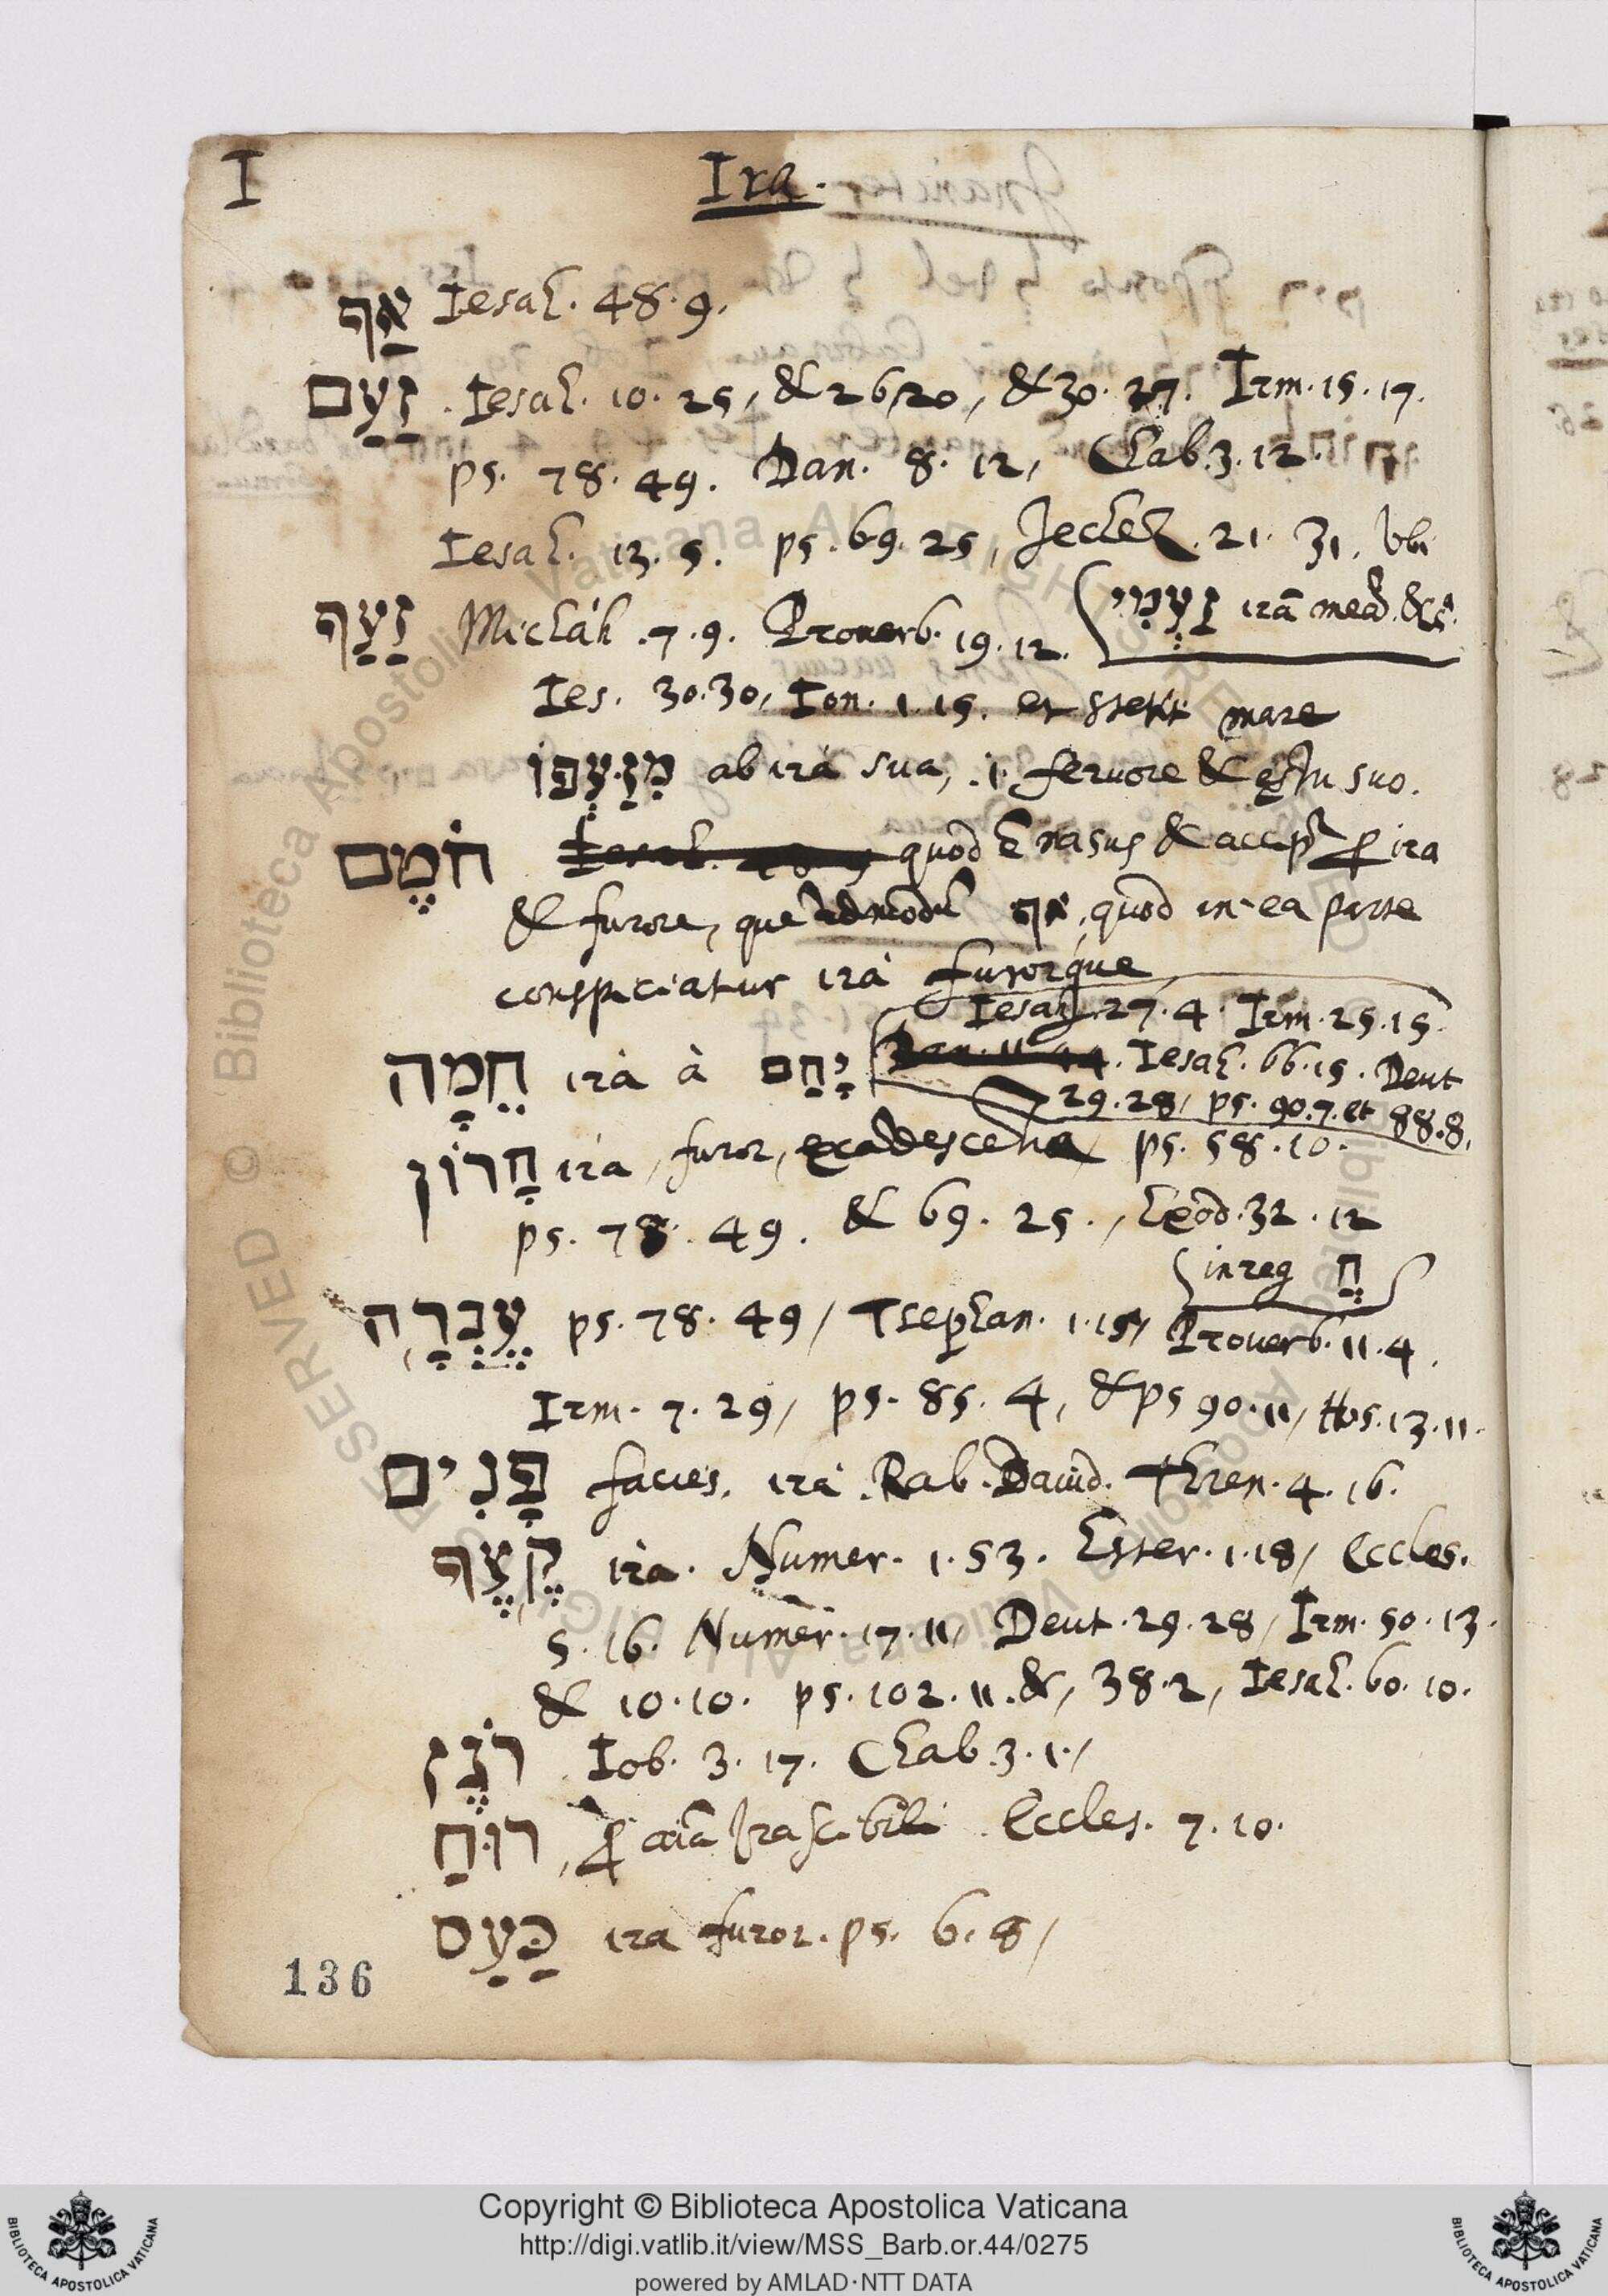 I
Ira.
אַף Iesah. 48. 9.
זַעַם . Iesah. 10. 25, & 26, 20, & 30. 27. Irm. 15. 17.
ps. 78. 49. Dan. 8. 12, Chab. 3. 12.
Iesah. 13. 5. ps. 69. 25, Jechez. 21. 31, vbi
זַעְמִי irā meā. &c.
זַעַף Michàh. 7. 9. Prouerb. 19. 12.
Ies. 30. 30, Ion. 1. 15. et stetit mare
מִזַּעְפּוֹ ab irà sua, .i. feruore & ęstu suo.
חֹטֶם Iesah. 48. 9 quod ē nasus & accipr̄ ꝓ ira
& furore, quēadmodū אף, quod in ea parte
conspiciatur irà furorque
Iesah. 27. 4. Irm. 25. 15.
חֵמָה irà à יָחַם Dan. 11. 44. Iesah. 66. 15. Deut
29. 28, ps. 90. 7. et 88. 8.
חָרוֹן irà, furor, ps. 58. 10.
ps. 78. 49. & 69. 25., Exod. 32. 12
in reg חֲ
עֶבְרָה ps. 78. 49, Tsephan. 1. 15, Prouerb. 11. 4.
Irm. 7. 29, ps. 85. 4, & ps 90. 11, Hos. 13. 11.
פָּנִים facies. irà. Rab. Dauid. Thren. 4. 16.
קֶצֶף irà. Numer. 1. 53. Ester. 1. 18, Eccles.
5. 16. Numer. 17. 11, Deut. 29. 28, Irm. 50. 13.
& 10. 10. ps. 102. 11. &, 38. 2, Iesah. 60. 10.
רֹגֶז Iob. 3. 17. Chab. 3. 1.,
רוּחַ, ꝓ aīa Irascibili Eccles. 7. 10.
כַּעַס ira furor. ps. 6. 8,
136
Copyright © Biblioteca Apostolica Vaticana
http://digi.vatlib.it/view/MSS_Barb.or.44/0275
powered by AMLAD·NTT DATA
BIBLIOTECA APOSTOLICA VATICANA
BIBLIOTECA APOSTOLICA VATICANA